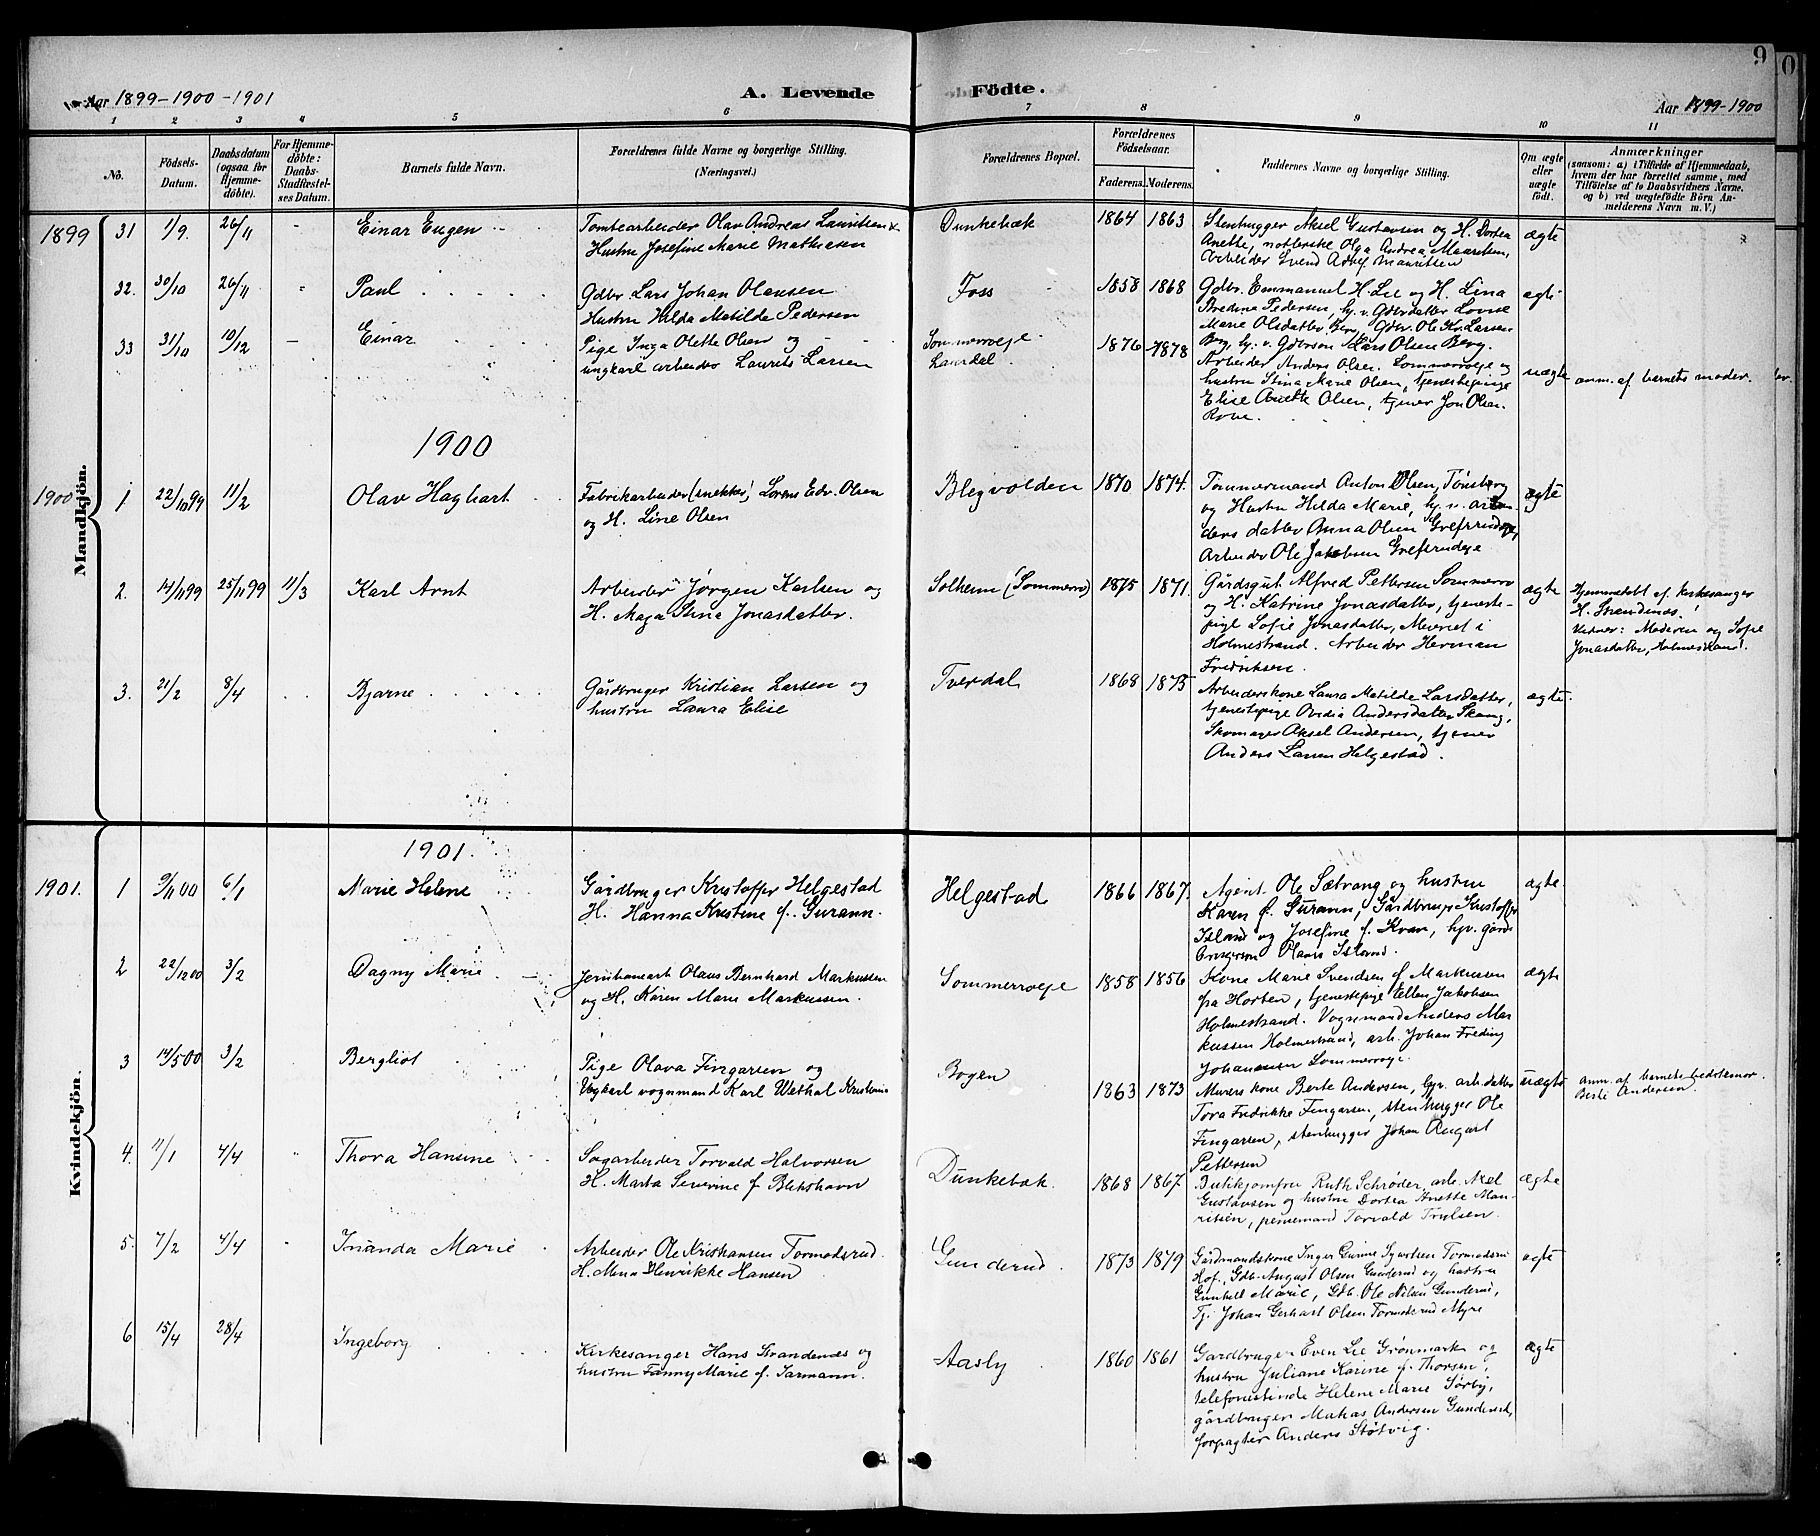 Aar 1899-1900-1901
A. Levende Födte.
9
Aar 1899-1900
1 2 3 4 5 6 7 8 9 10 11
No.
Födsels-Datum.
Daabsdatum (ogsaa for Hjemmedöbte).
For Hjemmedöbte: Daabs-Stadfæstelses Datum.
Barnets fulde Navn.
Forældrenes fulde Navne og borgerlige Stilling. (Næringsvei.)
Forældrenes Bopæl.
Forældrenes Födselsaar.
Faderens. Moderens.
Faddernes Navne og borgerlige Stilling.
Om ægte eller uægte födt.
Anmærkninger
(saasom: a) i Tilfælde af Hjemmedaab, hvem der har forrettet samme, med Tilföielse af to Daabsvidners Navne. og b) ved uægtefödte Börn Anmelderens Navn m. V.)
Mandkjön.
1899 31 1/9. 26/11 - Einar Eugen
Tomtearbeider Olav Andreas Lauritsen
Hustru Josefine Marie Mathiesen
Dunkebæk 1864 1863
Stenhugger Aksel Gustavsen og H. Dortea
Anette, Olga Andrea Mauritsen,
Arbeider Svend Adolf Mauritsen
ægte
32. 30/10 26/11 Paul
Gdbr Lars Johan Olausen
Hustru Hilda Matilde Pedersen
Foss 1858 1868
Gdbr. Emmanuel H. Lie og H. Lina
Bredine Pedersen, hj. v. Gdbrdatter Lovise
Marie Olsdatter Berg, Gdbr. Ole Kr. Larsen
Berg, hj. v. Gdbrsøn Lars Olsen Berg.
ægte
33 31/10 10/12 - Einar
Pige Inga Olette Olsen og
ungkarl arbeider Laurits Larsen
Sommerroeje
Laurdal 1876 1878
Arbeider Anders Olsen. Sommerroeje og
hustru Stina Marie Olsen, tjenestepige
Elise Anette Olsen, tjener Jon Olsen
uægte anm. af barnets moder.
1900
1900 1 22/10 99 11/2 Olav Haghart
Fabrikarbeider (snekker) Lorens Edv. Olsen
og H. Line Olsen
Blegvolden 1870 1874.
Tømmermand Anton Olsen, Tønsberg
og Hustru Hilda Marie, hj. v. arbei-
ders datter Anna Olsen Grefsrudeje,
Arbeider Ole Jakobsen Grefsrudeje
ægte
2. 14/11 99 25/11 99 11/3 Karl Arnt
Arbeider Jørgen Karlsen og
H. Maja Stina Jonasdatter.
Solheim (Sommerro) 1875 1871.
Gårdsgut Alfred Pettersen Sommerro
og H. Katrine Jonasdatter, tjeneste-
pige Sofie Jonasdatter, Meieriet i
Holmestrand. Arbeider Herman
Fredriksen.
ægte
Hjemmedøbt af kirkesanger
H. Strandenæs!
Vidner: Moderen og Sofie
Jonasdatter, Holmestrand.
3. 21/2 8/4 Bjarne
Gårdbruger Kristian Larsen og
hustru Laura Elise
Tverdal 1868 1875
Arbeiderskone Laura Matilde Larsdatter,
tjenestepige Ovidia Andersdatter Skaug,
Skomager Aksel Andersen, tjener
Anders Larsen Helgestad.
ægte.
Kvindekjön.
1901.
1901. 1 9/11 00 6/1 Marie Helene
Gårdbruger Kristoffer Helgestad
H. Hanna Kristine f. Gurann.
Helgestad 1866 1867.
Agent. Ole Sætrang og hustru
Karen f. Gurann, Gårdbruger Kristoffer
Island og Josefine f. Kvan, hjv. gård-
brugersøn Olaus Island.
ægte
2 22/12 00 3/2 Dagny Marie
Jernbaneart Olaus Bernhard Markussen
og H. Karen Marie Markussen.
Sommerroeje 1858 1856
Kone Marie Svendsen f. Markussen
fra Horten, tjenestepige Ellen Jakobsen
Holmestrand. Vognmand Anders Mar-
kussen Holmestrand, arb. Johan Freding
Johannesen Sommerroeje.
ægte
3 14/5 00 3/2 Bergliot
Pige Olava Fingarsen og
Ungkarl vognmand Karl Westhal Kristiania
Bogen 1863 1873
Murers kone Berte Andersen, hjv. arb.datter
Tora Fredrikke Fingarsen, stenhugger Ole
Fingarsen, stenhugger Johan August
Pettersen
uægte
anm. af barnets bedstemor
Berte Andersen
4. 11/1 4/4 Thora Hansine
Sagarbeider Torvald Halvorsen
H. Marta Severine f. Blekshavn
Dunkebæk. 1868 1867.
Butikjomfru Ruth Schrøder, arb. Aksel
Gustavsen og hustru Dortea Anette Mau-
ritsen, Torvald Trulsen.
ægte
5. 7/2 4/4 Inanda Marie
Arbeider Ole Kristiansen Tormodsrud.
H. Mena Henrikke Hansen
Gunderud. 1873 1879
Gårdmandskone Inger Gurine Syvertsen Tormodsrud
Hof. Gdb. August Olsen Gunderud og hustru
Gunhild Marie, Gdb. Ole Nilsen Gunderud,
Tj. Johan Gerhart Olsen Tormodsrud Myre
ægte
6 15/4 28/4 Ingeborg
Kirkesanger Hans Strandenæs og
hustru Fanny Marie f. Sarmann.
Aasly 1860 1861
Gårdbruger Even Lie Grønmark og
hustru Juliane Karine f. Thorsen,
telefonistinde Helene Marie Sørby,
gårdbruger Mathias Andersen Gunderud,
forpagter Anders Støtvig.
ægte